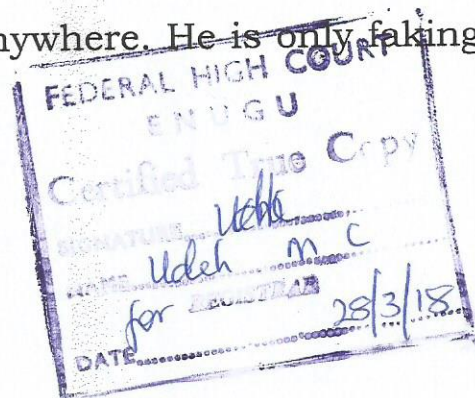 nywhere. He is only faking
FEDERAL HIGH COURT
ENUGU
Certified True Copy
SIGNATURE
NAME Udeh M C
for REGISTRAR
DATE 28/3/18